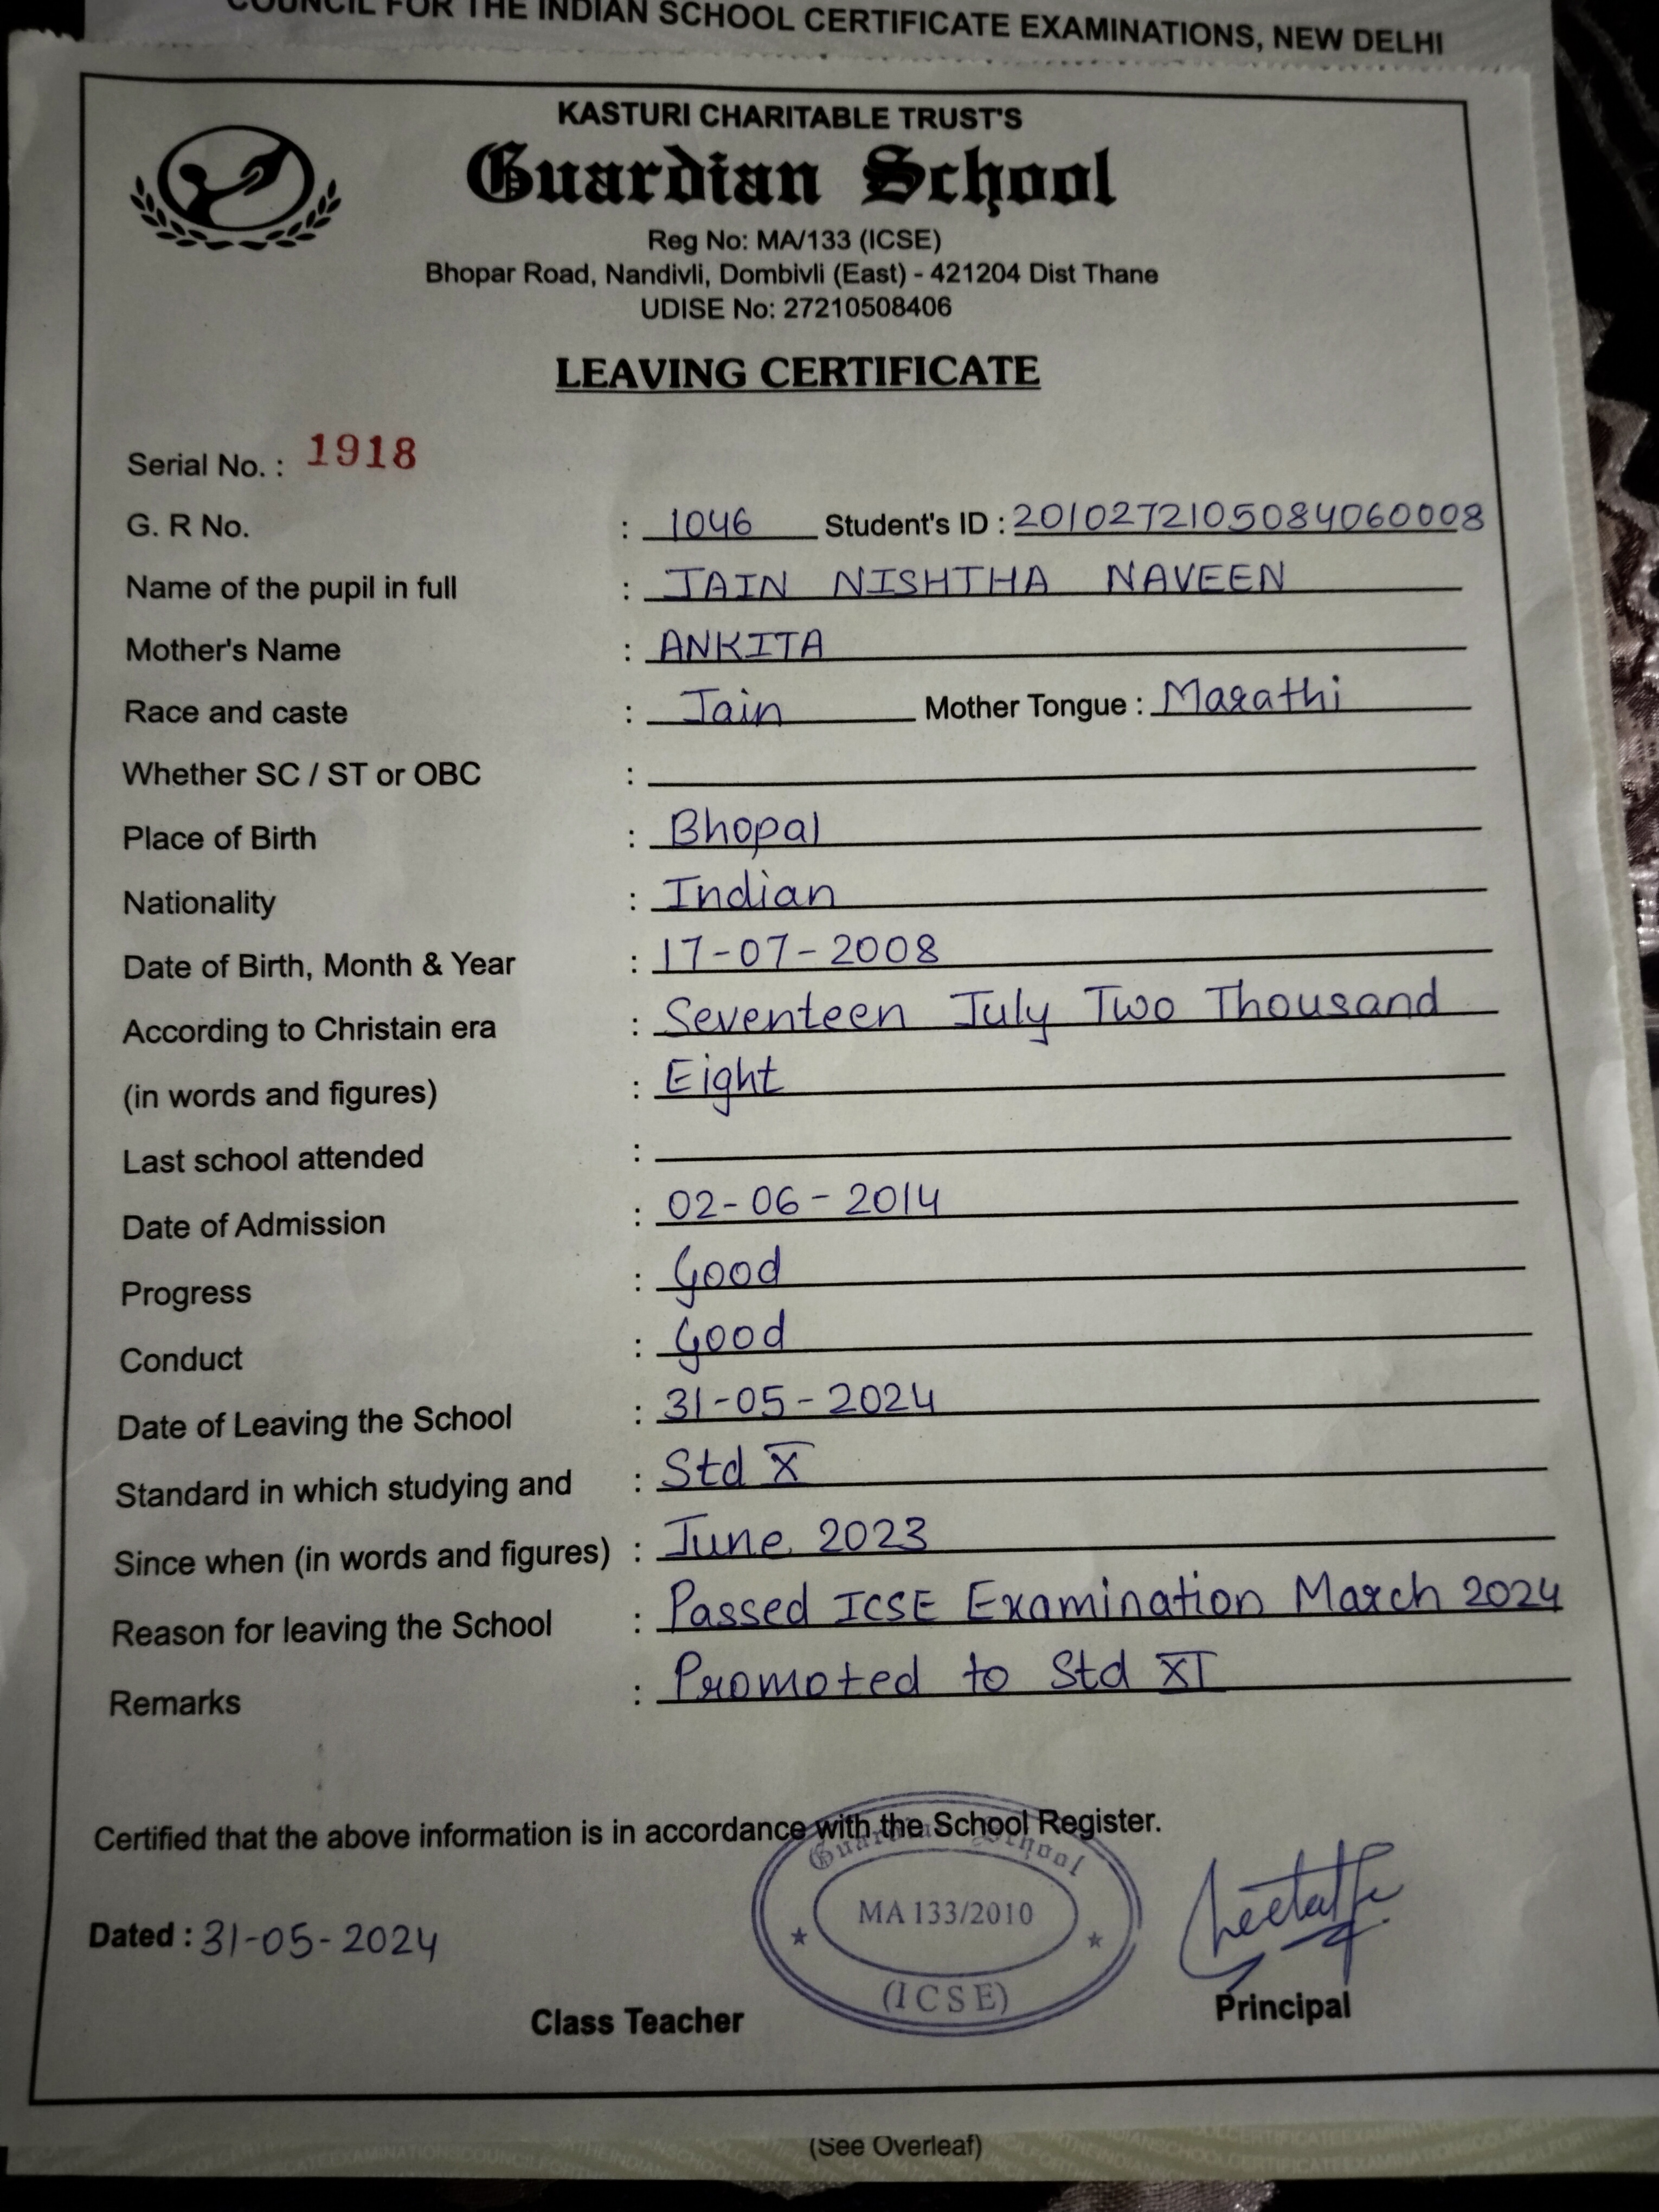 COUNCIL FOR THE INDIAN SCHOOL CERTIFICATE EXAMINATIONS, NEW DELHI
KASTURI CHARITABLE TRUST'S
Guardian School
Reg No: MA/133 (ICSE)
Bhopar Road, Nandivli, Dombivli (East) - 421204 Dist Thane
UDISE No: 27210508406
LEAVING CERTIFICATE
Serial No. : 1918
G. R No. : 1046 Student's ID : 2010272105084060008
Name of the pupil in full : JAIN NISHTHA NAVEEN
Mother's Name : ANKITA
Race and caste : Jain Mother Tongue : Marathi
Whether SC / ST or OBC :
Place of Birth : Bhopal
Nationality : Indian
Date of Birth, Month & Year : 17-07-2008
According to Christain era : Seventeen July Two Thousand
(in words and figures) : Eight
Last school attended :
Date of Admission : 02-06-2014
Progress : Good
Conduct : Good
Date of Leaving the School : 31-05-2024
Standard in which studying and : Std X
Since when (in words and figures) : June 2023
Reason for leaving the School : Passed ICSE Examination March 2024
Remarks : Promoted to Std XI
Certified that the above information is in accordance with the School Register.
Guardian School
MA 133/2010
(ICSE)
Dated : 31-05-2024
Class Teacher
Principal
(See Overleaf)